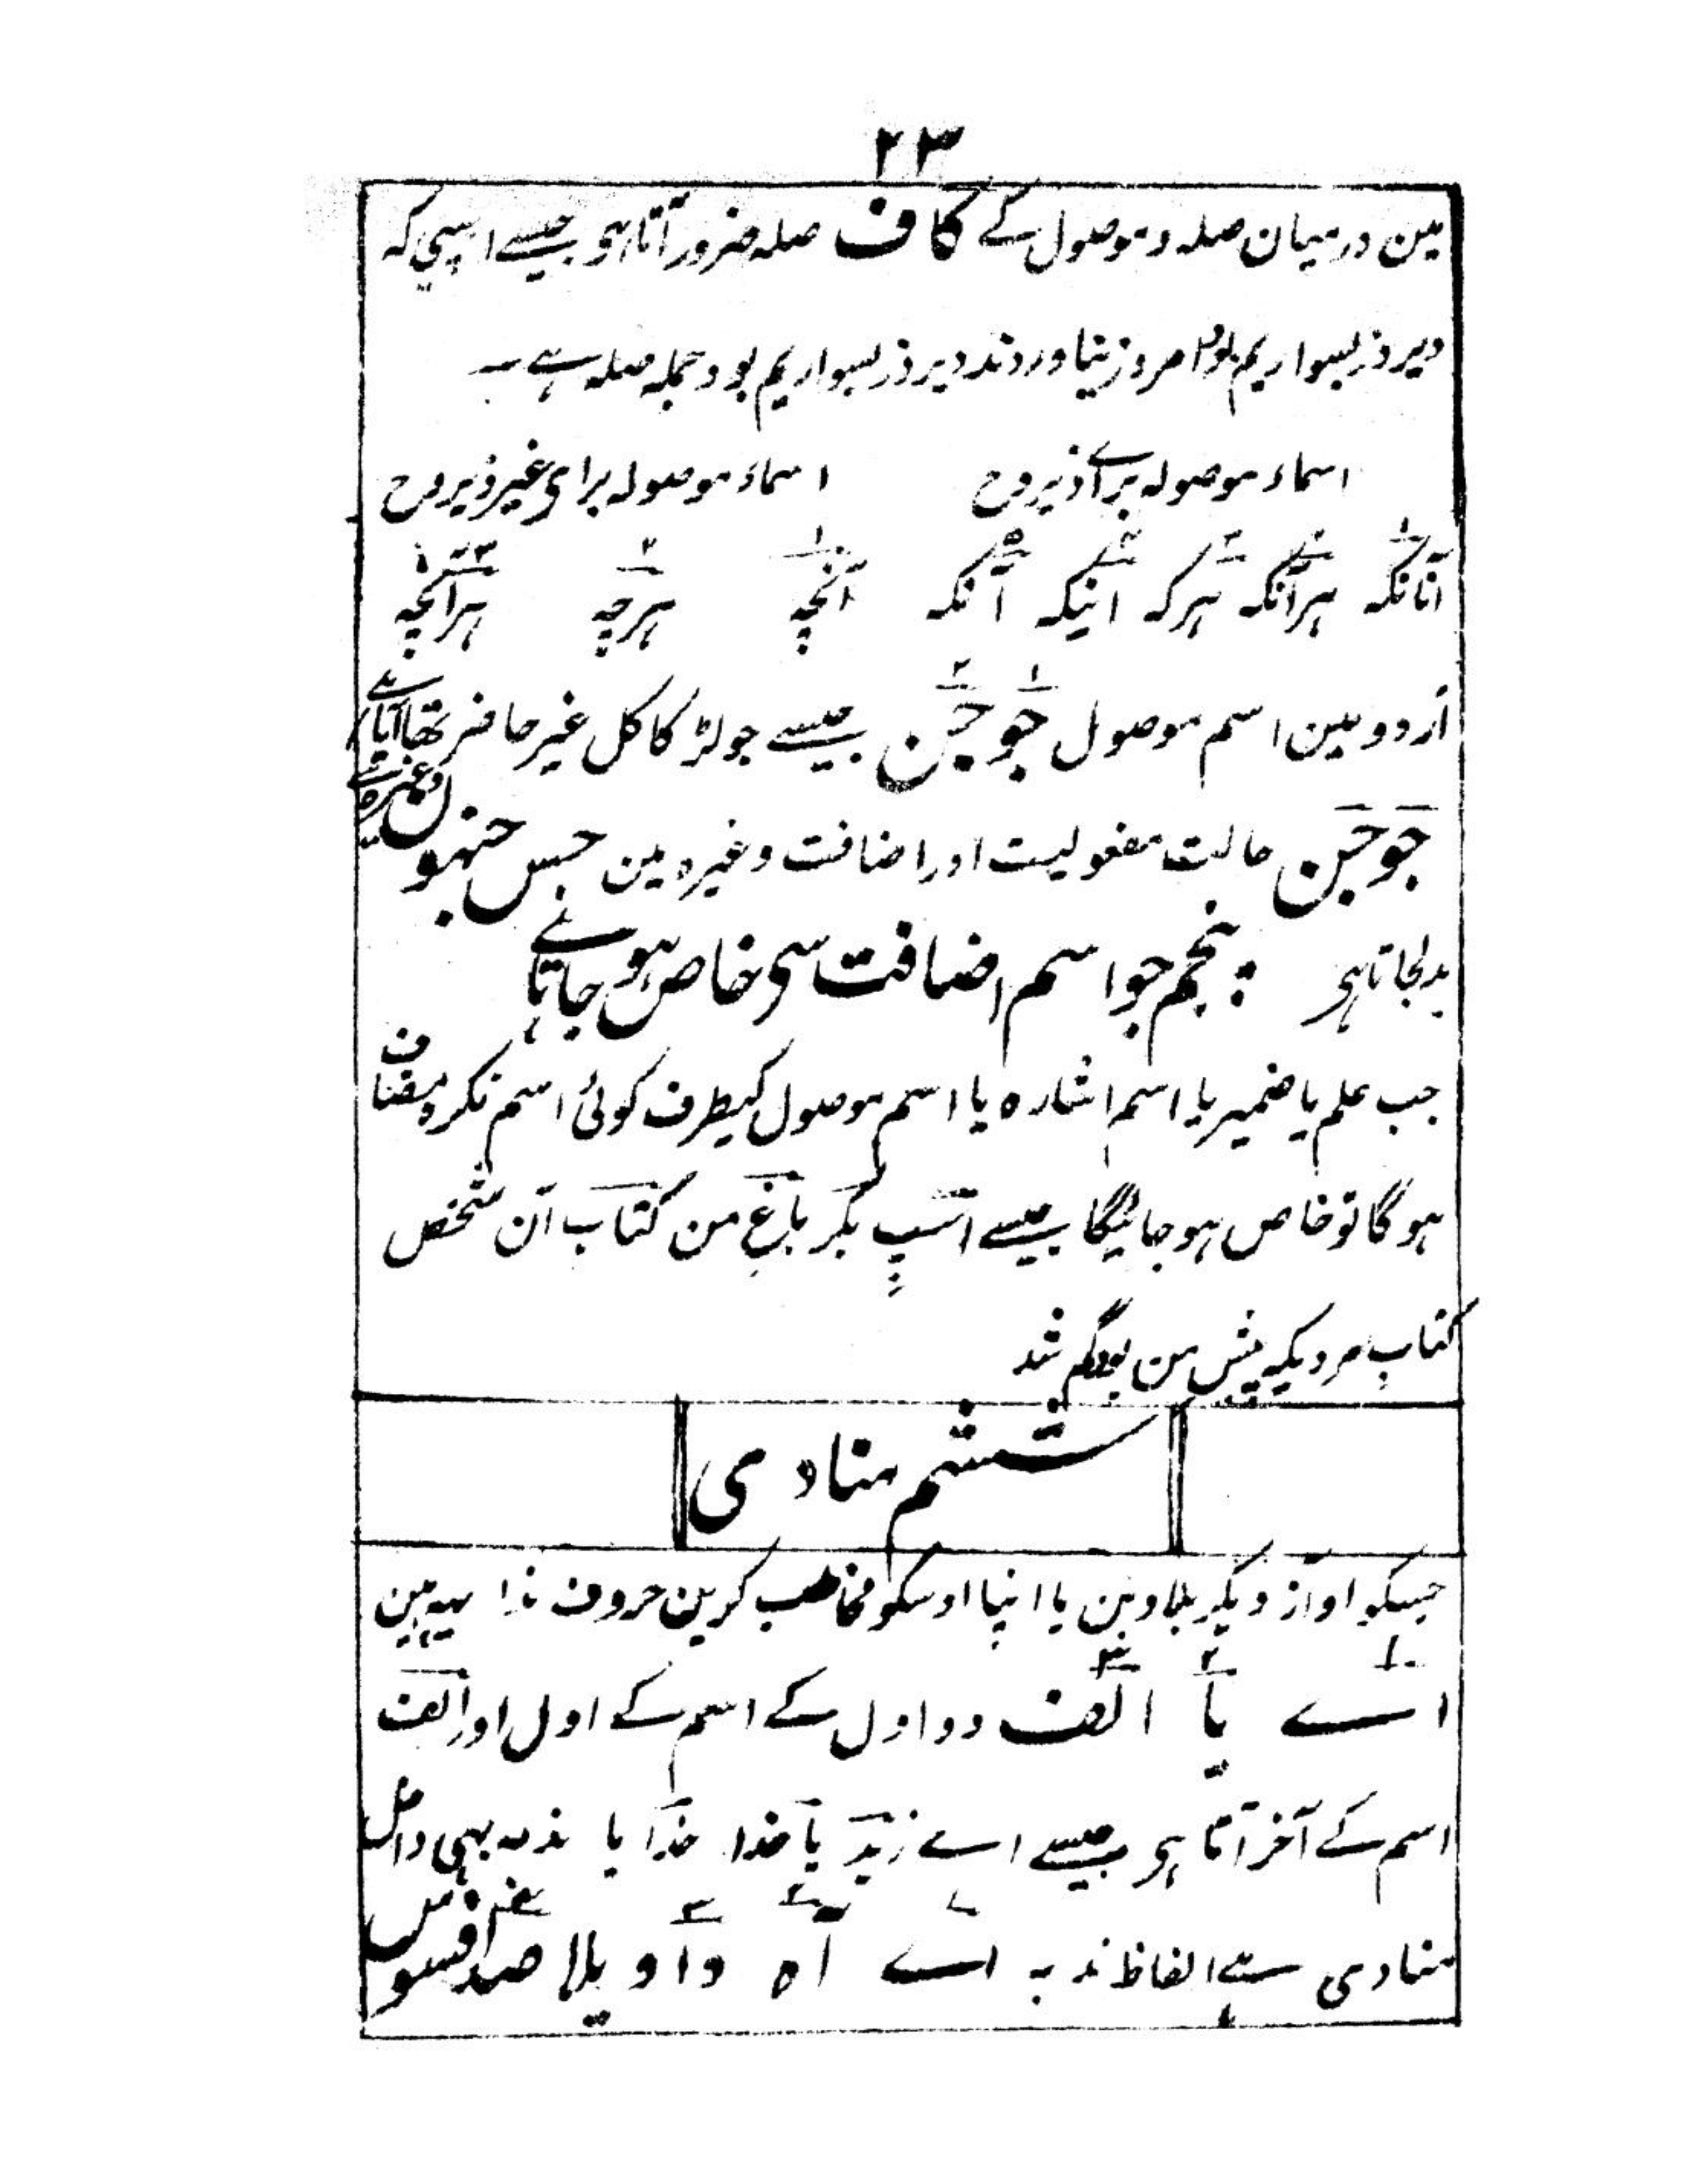 ۲۳
مین درمیان صلہ و موصول کے کاف صلہ ضرور آتا ہی جیسے اسپی کہ
دیروز بسواریم بود امروز نیاوردند دیروز بسواریم بود جملہ صلہ ہے
اسماء موصولہ برائے ذیروح اسماء موصولہ برای غیر ذیروح
آنانکہ ہرآنکہ ہرکہ اینکہ آنکہ آنچہ ہرچہ ہرآنچہ
اردو مین اسم موصول جو جن جیسے جو لڑکا کل غیر حاضر تھا آیا ہے
وغیرہ
جو جن حالت مفعولیت اور اضافت وغیرہ مین جس جنہو
بدلجاتا ہی پنجم جو اسم اضافت سی خاص ہو جاتا ہے
جب علم یا ضمیر یا اسم اشارہ یا اسم موصول کیطرف کوئی اسم نکرہ مضاف
ہوگا تو خاص ہو جائیگا جیسے اسپِ بکر باغِ من کتاب آن شخص
کتابِ مردیکہ پیش من بود گم شد
ششم منادی
جسکو آواز دیکر بلاوین یا اپنا اوسکو مخاطب کرین حروف ندا یہہ ہین
۱ ۲ ۳
اے یا الف دو اول کے اسم کے اول اور الف
اسم کے آخر آتا ہی جیسے اے زید یا خدا خدایا ندبہ بہی داخل
منادی ہے الفاظ ندبہ اے آہ واویلا صد افسوس